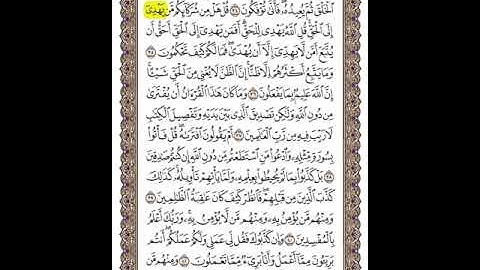 ٱلْخَلْقَ ثُمَّ يُعِيدُهُۥ فَأَنَّىٰ تُؤْفَكُونَ ٣٤ قُلْ هَلْ مِن شُرَكَآئِكُم مَّن يَهْدِىٓ
إِلَى ٱلْحَقِّ قُلِ ٱللَّهُ يَهْدِى لِلْحَقِّ أَفَمَن يَهْدِىٓ إِلَى ٱلْحَقِّ أَحَقُّ أَن
يُتَّبَعَ أَمَّن لَّا يَهِدِّىٓ إِلَّآ أَن يُهْدَىٰ فَمَا لَكُمْ كَيْفَ تَحْكُمُونَ ٣٥
وَمَا يَتَّبِعُ أَكْثَرُهُمْ إِلَّا ظَنًّا إِنَّ ٱلظَّنَّ لَا يُغْنِى مِنَ ٱلْحَقِّ شَيْـًٔا
إِنَّ ٱللَّهَ عَلِيمٌۢ بِمَا يَفْعَلُونَ ٣٦ وَمَا كَانَ هَٰذَا ٱلْقُرْءَانُ أَن يُفْتَرَىٰ
مِن دُونِ ٱللَّهِ وَلَٰكِن تَصْدِيقَ ٱلَّذِى بَيْنَ يَدَيْهِ وَتَفْصِيلَ ٱلْكِتَٰبِ
لَا رَيْبَ فِيهِ مِن رَّبِّ ٱلْعَٰلَمِينَ ٣٧ أَمْ يَقُولُونَ ٱفْتَرَىٰهُ قُلْ فَأْتُوا۟
بِسُورَةٍ مِّثْلِهِۦ وَٱدْعُوا۟ مَنِ ٱسْتَطَعْتُم مِّن دُونِ ٱللَّهِ إِن كُنتُمْ صَٰدِقِينَ
٣٨ بَلْ كَذَّبُوا۟ بِمَا لَمْ يُحِيطُوا۟ بِعِلْمِهِۦ وَلَمَّا يَأْتِهِمْ تَأْوِيلُهُۥ كَذَٰلِكَ
كَذَّبَ ٱلَّذِينَ مِن قَبْلِهِمْ فَٱنظُرْ كَيْفَ كَانَ عَٰقِبَةُ ٱلظَّٰلِمِينَ ٣٩
وَمِنْهُم مَّن يُؤْمِنُ بِهِۦ وَمِنْهُم مَّن لَّا يُؤْمِنُ بِهِۦ وَرَبُّكَ أَعْلَمُ
بِٱلْمُفْسِدِينَ ٤٠ وَإِن كَذَّبُوكَ فَقُل لِّى عَمَلِى وَلَكُمْ عَمَلُكُمْ أَنتُم
بَرِيٓـُٔونَ مِمَّآ أَعْمَلُ وَأَنَا۠ بَرِىٓءٌ مِّمَّا تَعْمَلُونَ ٤١ وَمِنْهُم مَّن